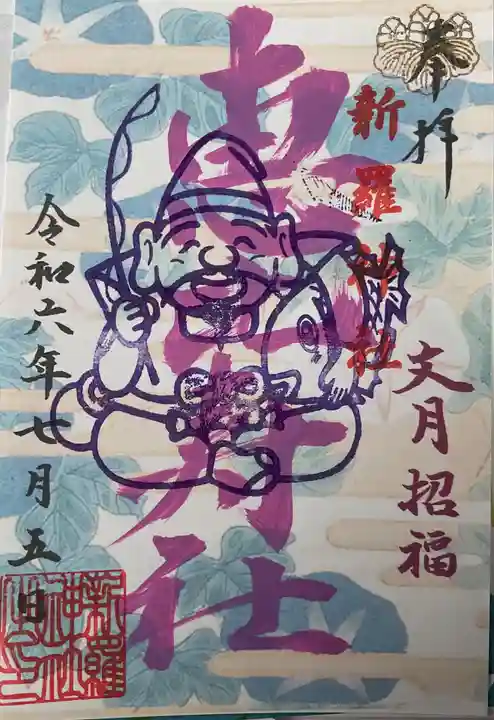 奉拝
文月招福
新羅神社
社
令和六年七月五日
新羅
神社